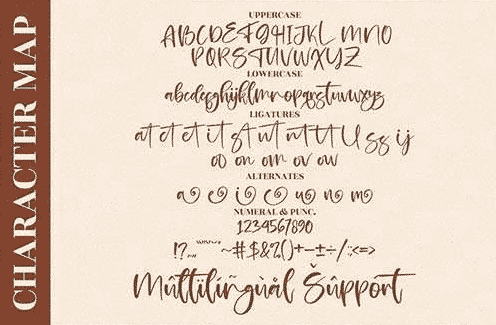 CHARACTER MAP
UPPERCASE
ABCDEFGHIJKL MNO
PQRSTUVWXYZ
LOWERCASE
abcdefghijklmnopqrstuvwxyz
LIGATURES
at ct et it st ut nt tt ll ss ij
oo on om ov ow
ALTERNATES
a e i c u n m
NUMERAL & PUNC.
1234567890
~#$&%()+-±÷/:<=>
Múltïlíñgùål Šûppört